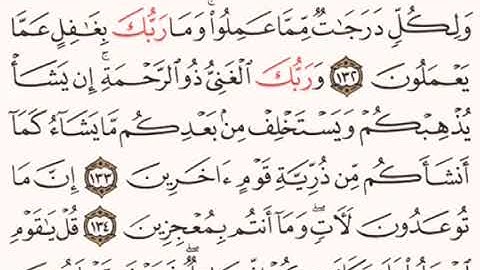 وَلِكُلٍّ دَرَجَٰتٌ مِّمَّا عَمِلُوا۟ ۚ وَمَا رَبُّكَ بِغَٰفِلٍ عَمَّا
يَعْمَلُونَ ١٣٢ وَرَبُّكَ الْغَنِىُّ ذُو الرَّحْمَةِ ۚ إِن يَشَأْ
يُذْهِبْكُمْ وَيَسْتَخْلِفْ مِنۢ بَعْدِكُم مَّا يَشَآءُ كَمَآ
أَنشَأَكُم مِّن ذُرِّيَّةِ قَوْمٍ ءَاخَرِينَ ١٣٣ إِنَّ مَا
تُوعَدُونَ لَءَاتٍ ۖ وَمَآ أَنتُم بِمُعْجِزِينَ ١٣٤ قُلْ يَٰقَوْمِ